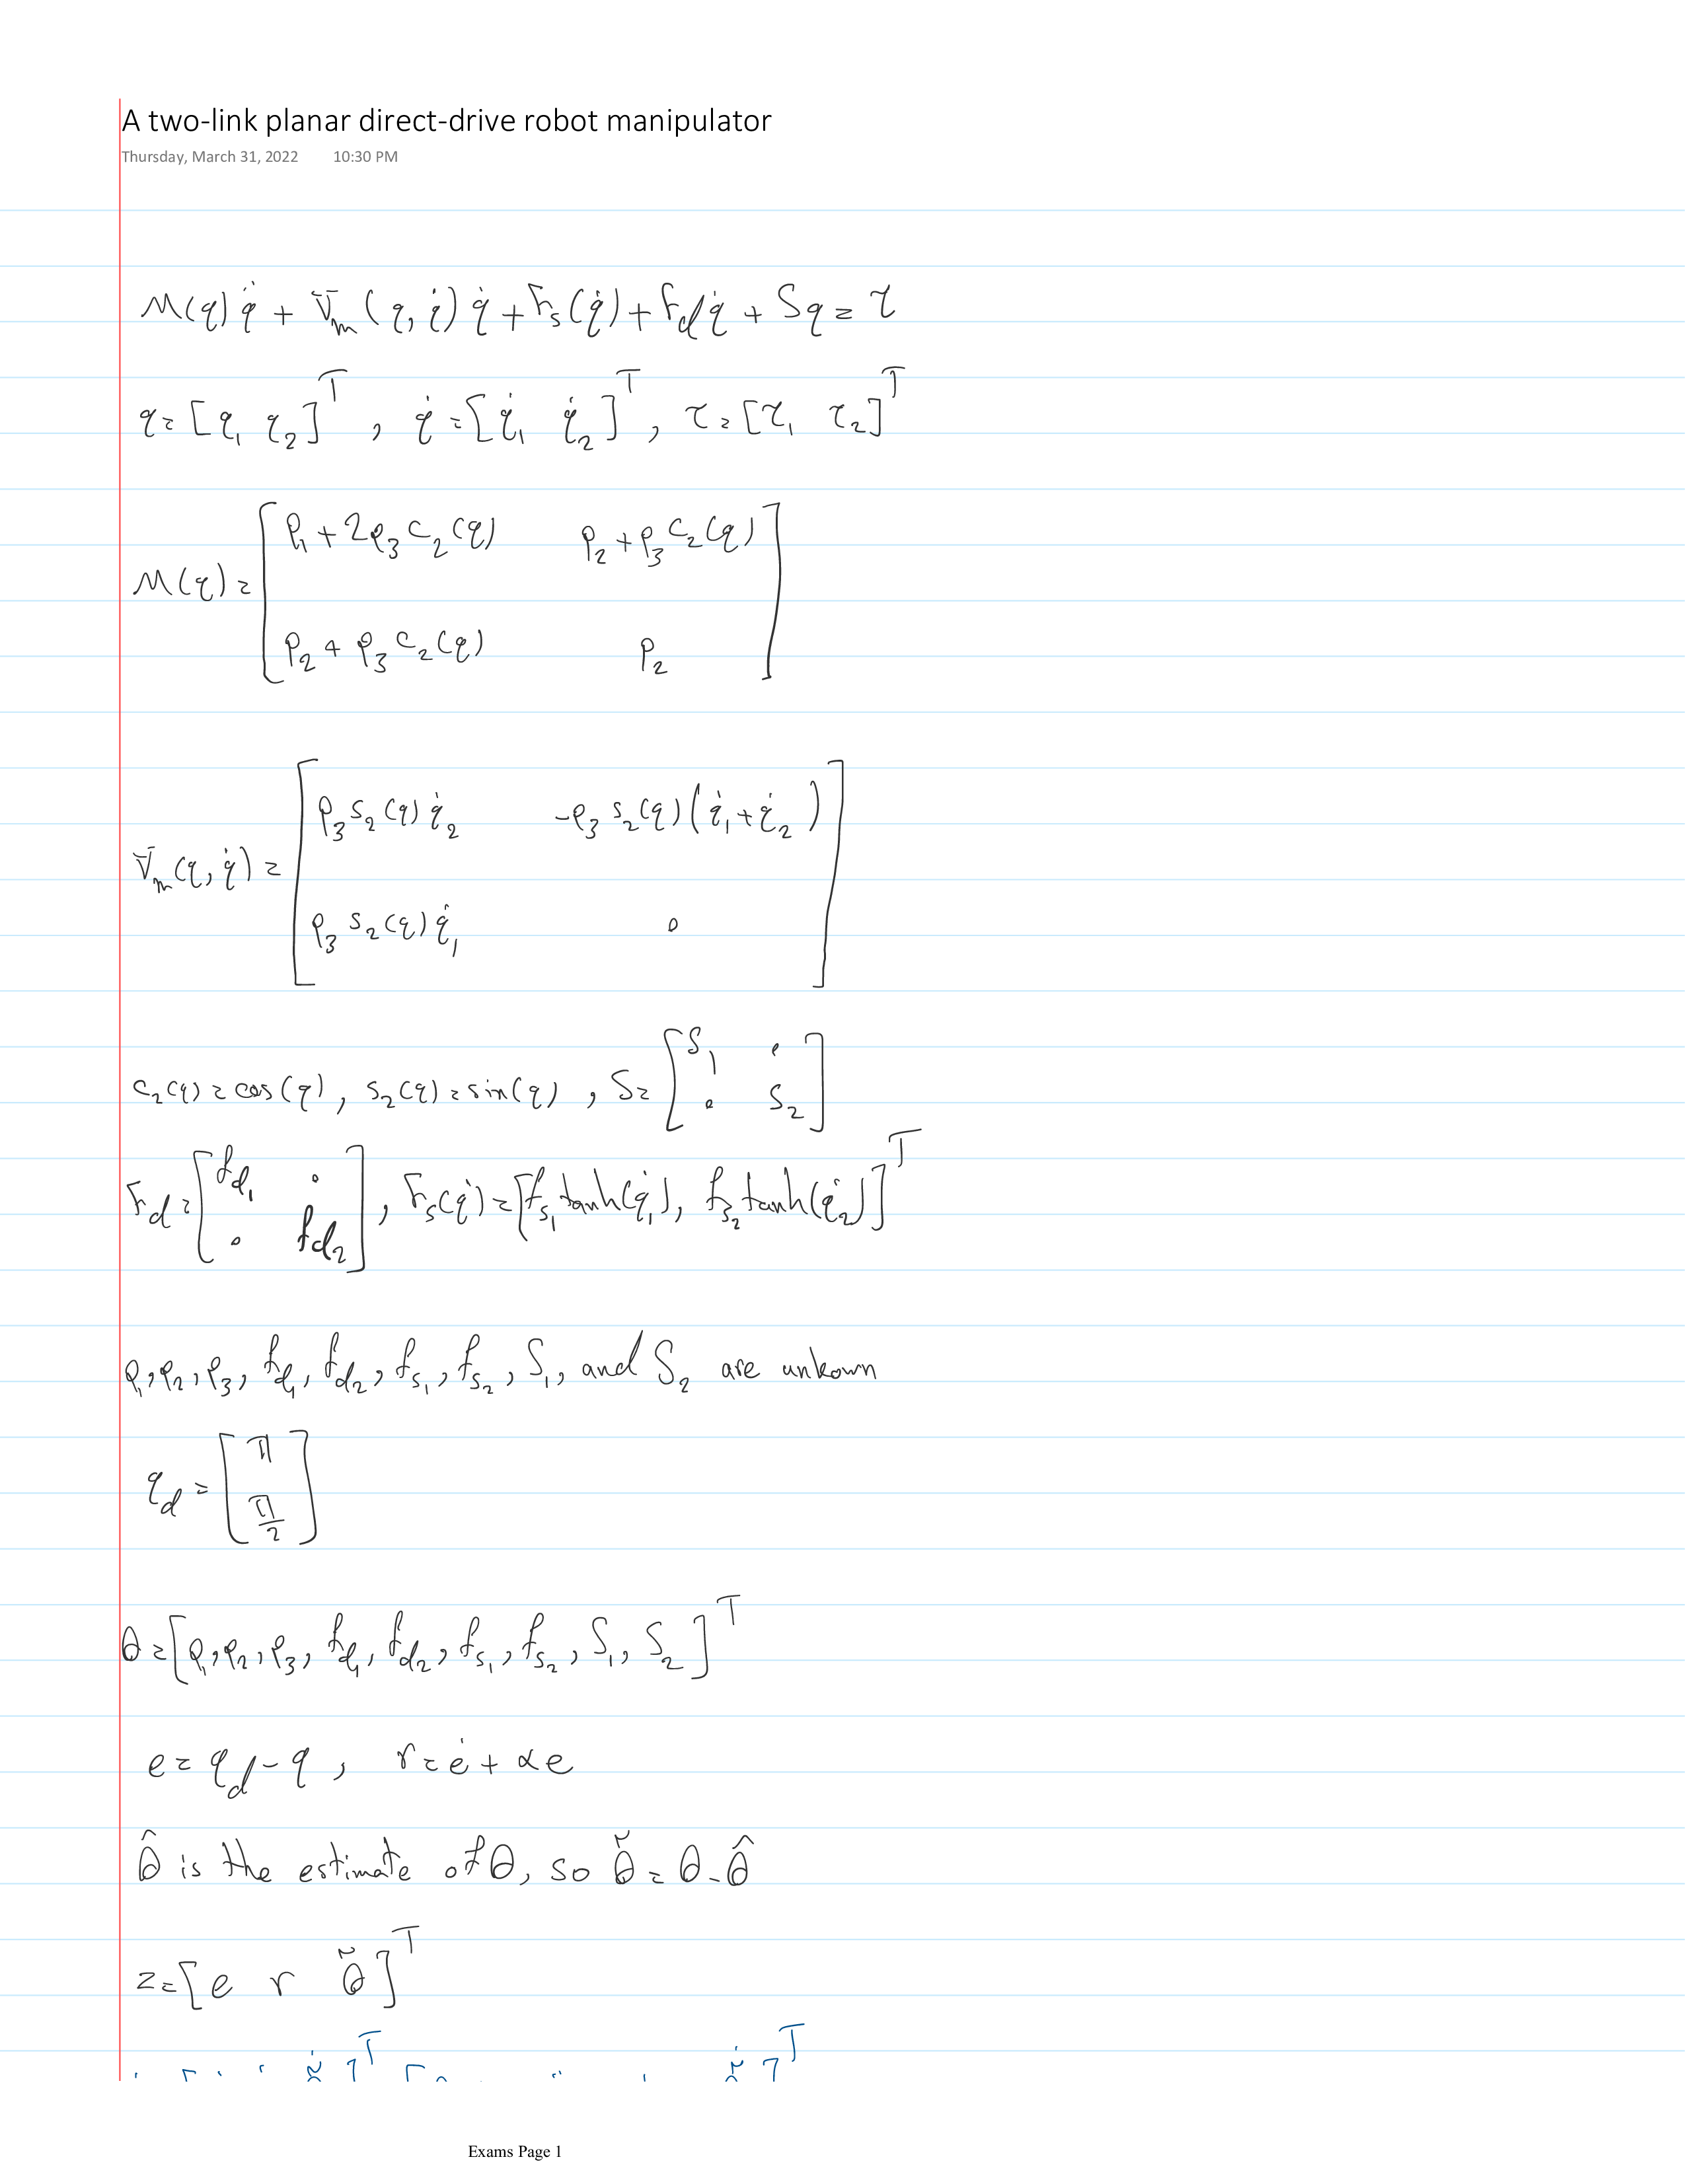 A two-link planar direct-drive robot manipulator
Thursday, March 31, 2022 10:30 PM
M(q) q̈ + V̄ₘ(q, q̇) q̇ + Fₛ(q̇) + F_d q̇ + Sq = τ
q = [q₁ q₂]ᵀ, q̇ = [q̇₁ q̇₂]ᵀ, τ = [τ₁ τ₂]ᵀ
M(q) = [ρ₁ + 2ρ₃c₂(q) ρ₂ + ρ₃c₂(q)
ρ₂ + ρ₃c₂(q) ρ₂]
V̄ₘ(q, q̇) = [ρ₃s₂(q)q̇₂ -ρ₃s₂(q)(q̇₁ + q̇₂)
ρ₃s₂(q)q̇₁ 0]
c₂(q) = cos(q), s₂(q) = sin(q), S = [S₁ 0
0 S₂]
F_d = [f_d₁ 0
0 f_d₂], Fₛ(q̇) = [fₛ₁ tanh(q̇₁), fₛ₂ tanh(q̇₂)]ᵀ
ρ₁, ρ₂, ρ₃, f_d₁, f_d₂, fₛ₁, fₛ₂, S₁, and S₂ are unkown
q_d = [π
π/2]
θ = [ρ₁, ρ₂, ρ₃, f_d₁, f_d₂, fₛ₁, fₛ₂, S₁, S₂]ᵀ
e = q_d - q, r = ė + αe
θ̂ is the estimate of θ, so θ̃ = θ - θ̂
z = [e r θ̃]ᵀ
Exams Page 1